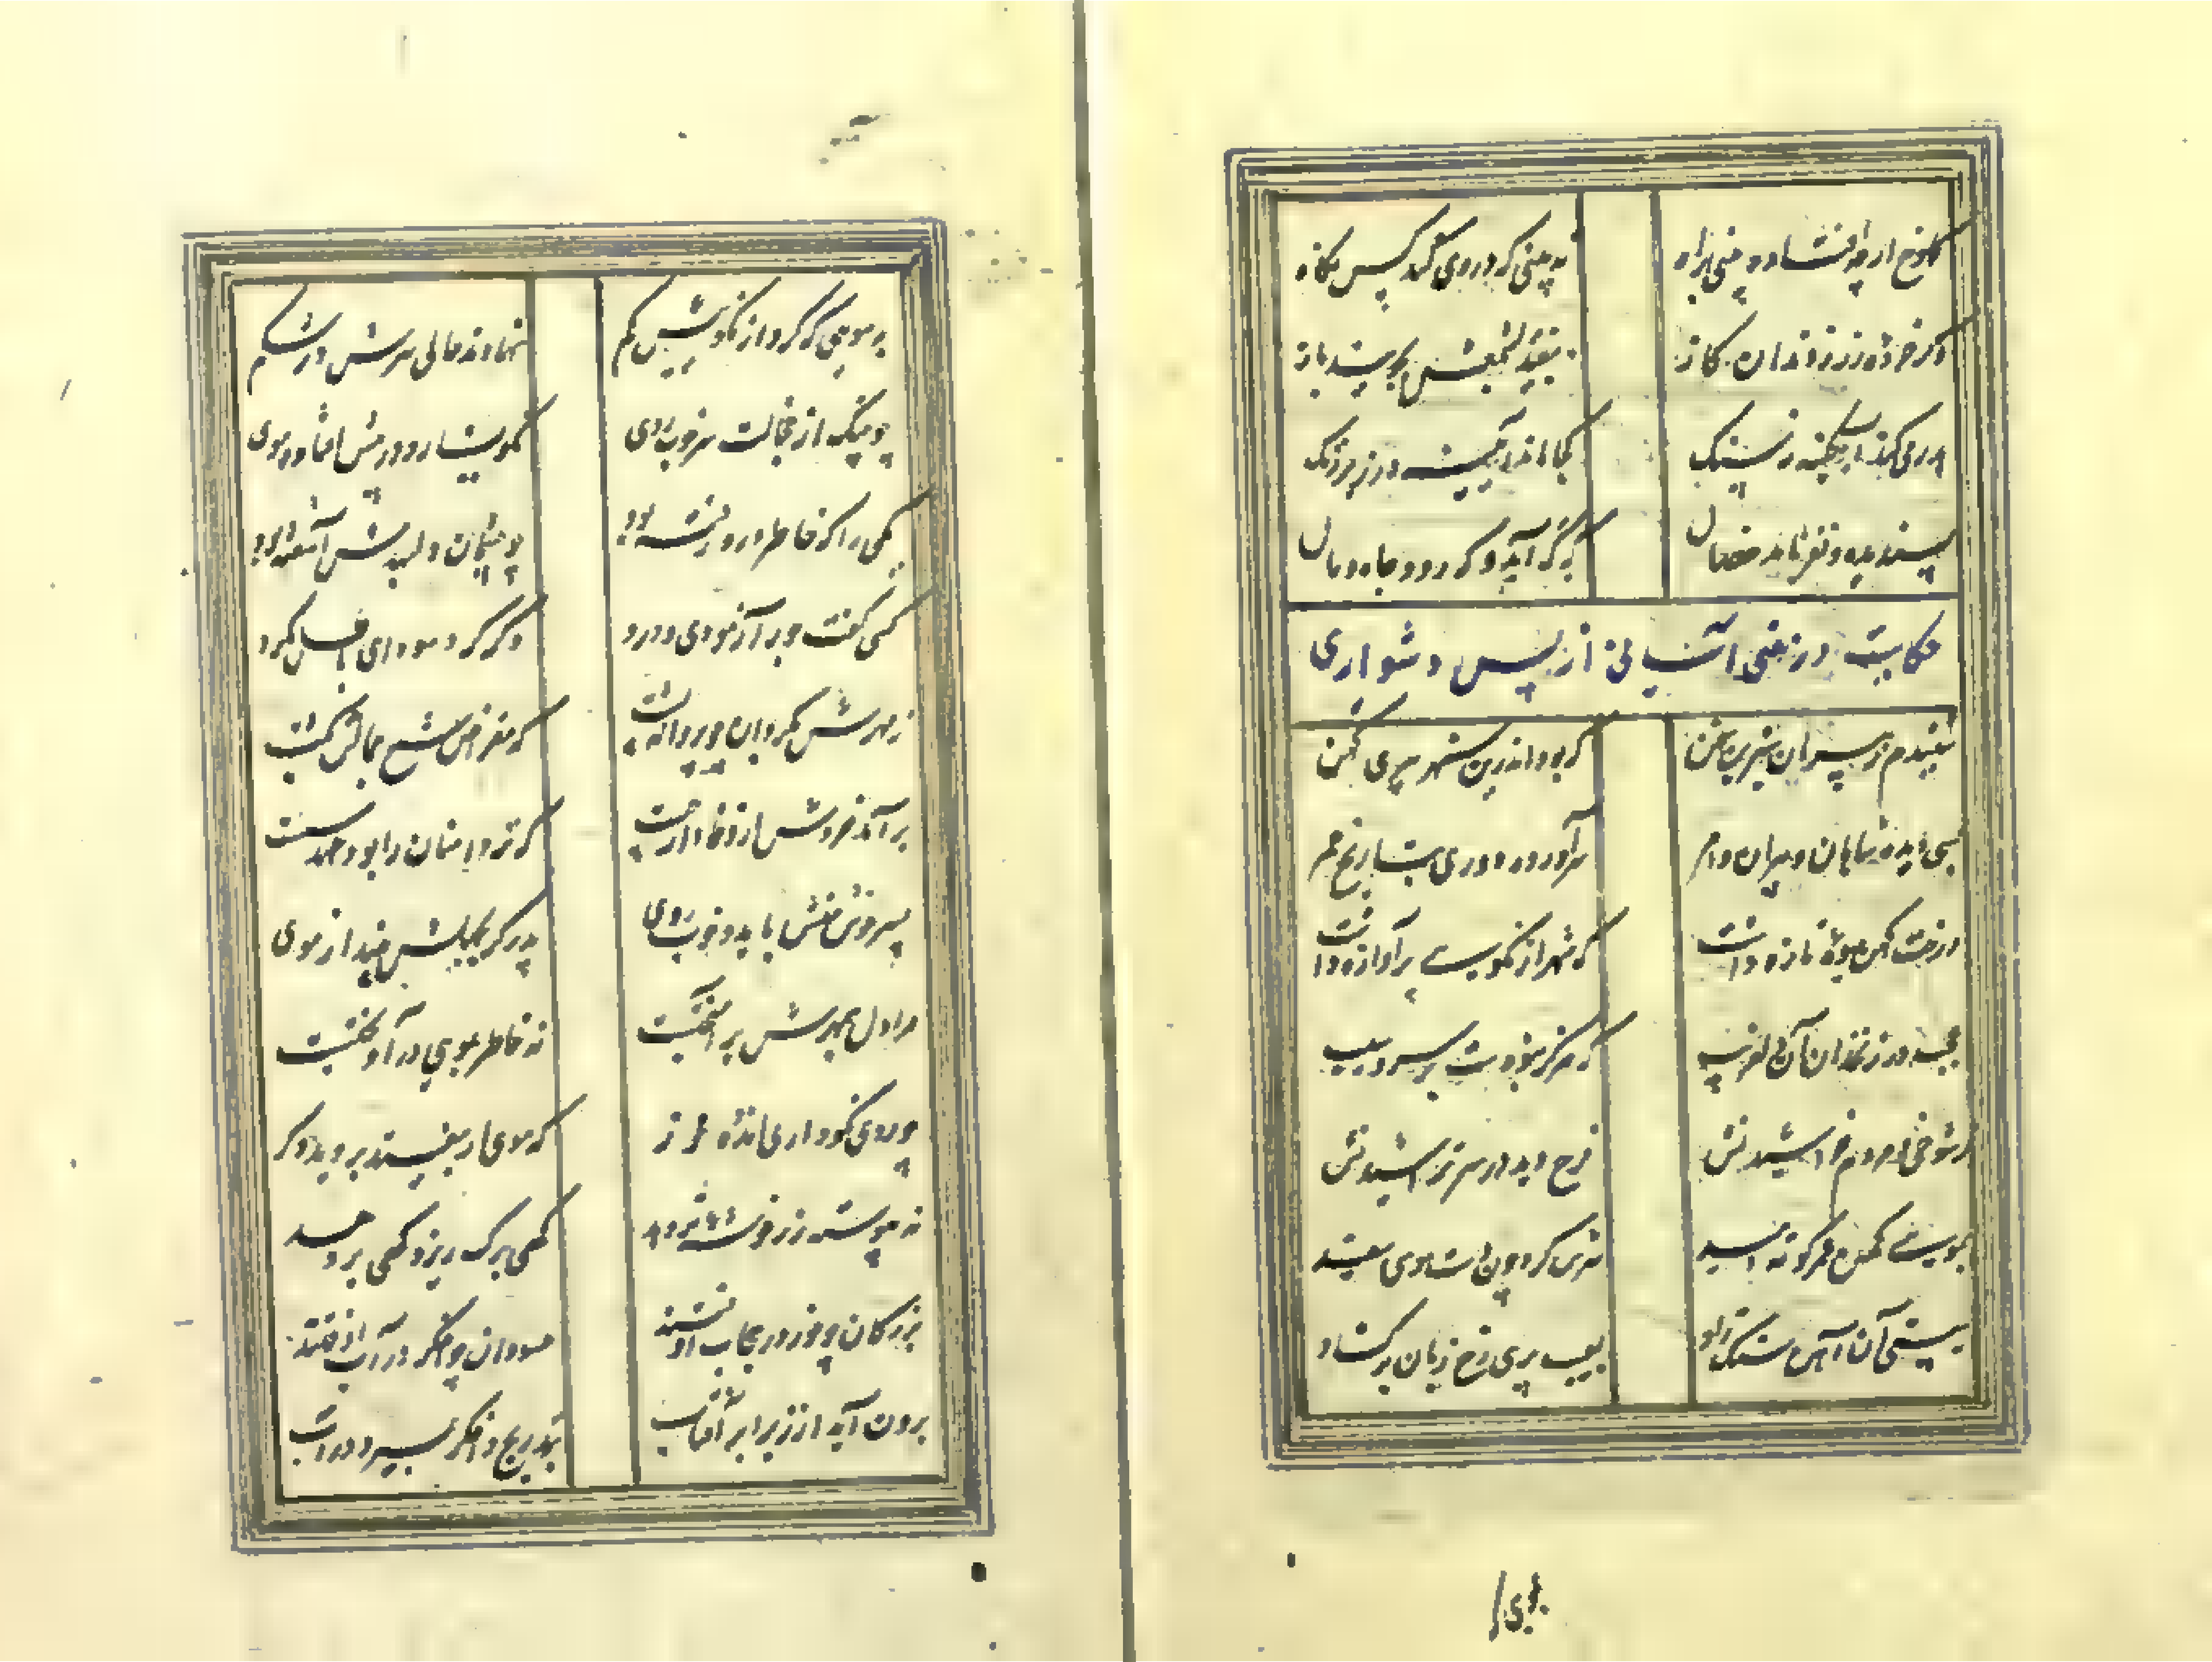 کلوخ ارچه افتاده بینی براه نه بینی که در وی کند کس نگاه
وگر خردهٔ زر ز دندان گاز بیفتد بشمعش بجویند باز
بدر می کنند آبگینه ز سنگ کجا ماند آیینه در زیر زنگ
پسندیده و نغز باید خصال که گه آید و گه رود جاه و مال
حکایت در معنی آسانی از پس دشواری
شنیدم ز پیران شیرین سخن که بود اندرین شهر پیری کهن
بسی دیده شاهان و میران و امر سرآورده دوری بتاریخ عمر
درخت کهن میوهٔ تازه داشت که شهر از نکویی پر آوازه داشت
عجب در زنخدان آن دلفریب که هرگز نبودست بر سرو سیب
ز شوخی و مردم خراشیدنش فرج دید در سر تراشیدنش
بموسی کهن عمر کوته امید سرش کرد چون دست موسی سپید
بسختی آن آهن سنگ زاد بعیب پری رخ زبان برگشاد
بموی که کرد از نکوییش کم نهادند حالی سرش در شکم
چو چنگ از خجالت سر خوب روی نگونسار و در پیشش افتاده موی
یکی را که خاطر درو رفته بود چو چشمان دلبندش آشفته بود
کسی گفت جور آزمودی و درد دگر گرد سودای باطل مگرد
ز مهرش بگردان چو پروانه پشت که مقراض شمع جمالش بکشت
برآمد خروش از هوادار چست که تر دامنان را بود عهد سست
پسر خوش منش باید و خوب روی پدر گو بجهلش بینداز موی
مرا دل بمهرش برآمیخت ست نه خاطر بموی درآویخت ست
چو روی نکو داری انده مخور که موی ار بیفتد بروید دگر
نه پیوسته رز خوشهٔ تر دهد گهی برگ ریزد گهی بر دهد
بزرگان چو خور در حجاب اوفتند حسودان چو اخگر در آب اوفتند
برون آید از زیر ابر آفتاب بتدریج و اخگر بمیرد در آب